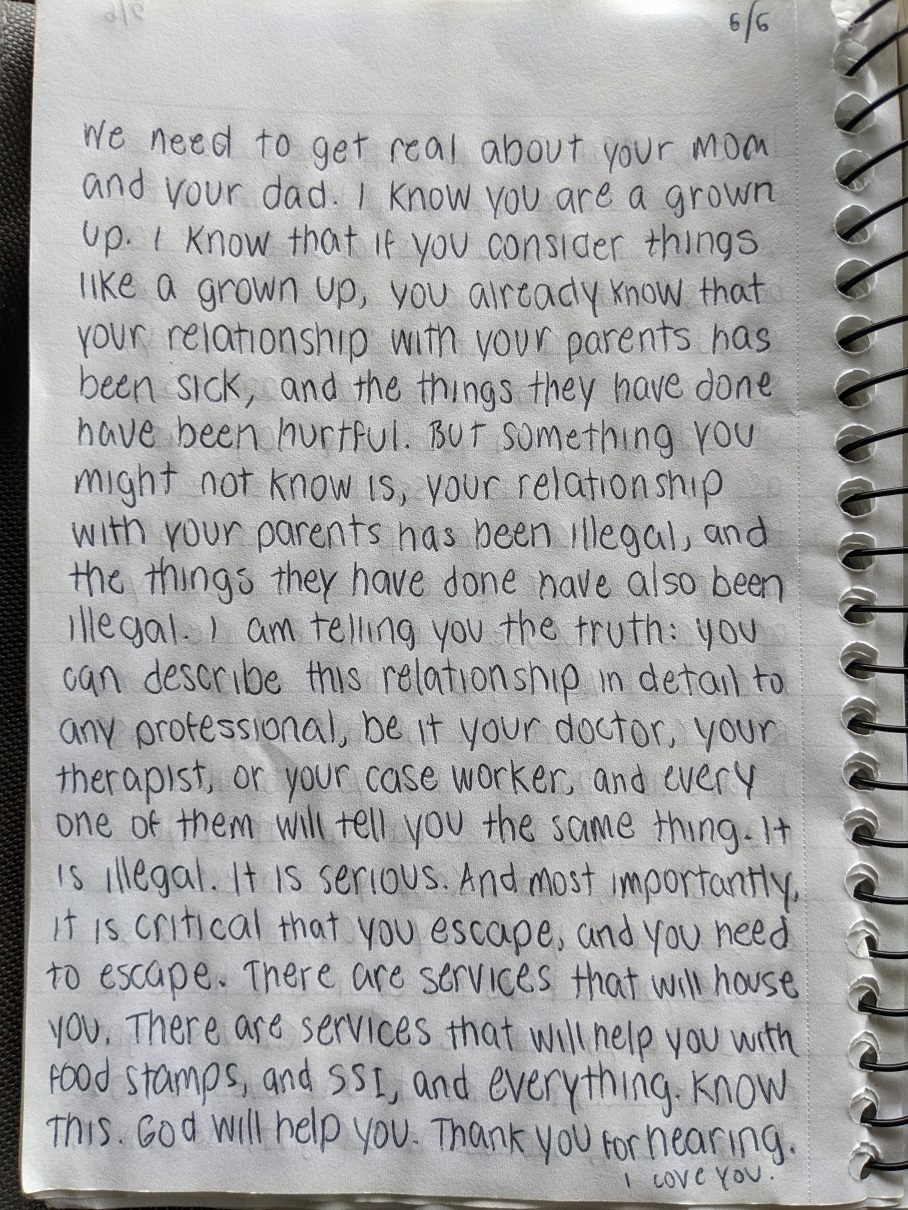 6/6
We need to get real about your mom
and your dad. I know you are a grown
up. I know that if you consider things
like a grown up, you already know that
your relationship with your parents has
been sick, and the things they have done
have been hurtful. But something you
might not know is, your relationship
with your parents has been illegal, and
the things they have done have also been
illegal. I am telling you the truth: you
can describe this relationship in detail to
any professional, be it your doctor, your
therapist, or your case worker, and every
one of them will tell you the same thing. It
is illegal. It is serious. And most importantly,
it is critical that you escape, and you need
to escape. There are services that will house
you. There are services that will help you with
food stamps, and SSI, and everything. Know
this. God will help you. Thank you for hearing.
I love you.